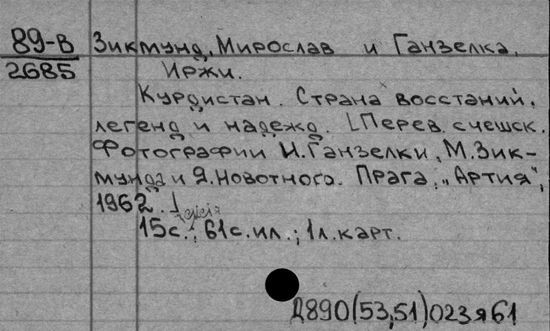 89-В Зикмунд, Мирослав и Ганзелка,
2685 Иржи.
Курдистан. Страна восстаний,
легенд и надежд. [Перев. с чешск.
Фотографии И. Ганзелки, М. Зик-
мунда и Я. Новотного. Прага, "Артия",
1962.
15с.; 61с. ил.; 1л. карт.
Д890(53,51)023я61